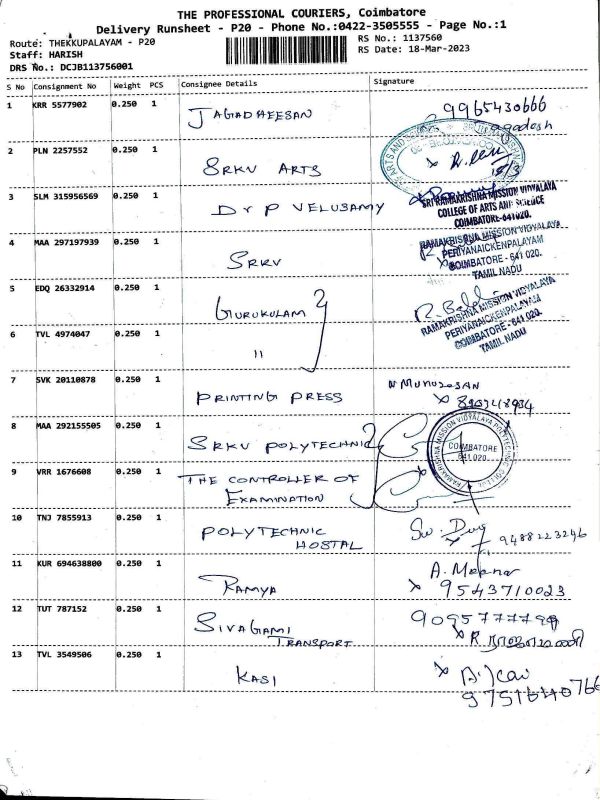 THE PROFESSIONAL COURIERS, Coimbatore
Delivery Runsheet - P20 - Phone No.:0422-3505555 - Page No.:1
Route: THEKKUPALAYAM - P20
RS No.: 1137560
Staff: HARISH
RS Date: 18-Mar-2023
DRS No.: DCJB113756001
S No Consignment No Weight PCS Consignee Details Signature
1 KRR 5577902 0.250 1 JAGADHEESAN 9965430666
Jagadesh
2 PLN 2257552 0.250 1 SRKV ARTS
3 SLM 315956569 0.250 1 Dr P VELUSAMY
SRI RAMAKRISHNA MISSION VIDYALAYA
COLLEGE OF ARTS AND SCIENCE
COIMBATORE-641020.
4 MAA 297197939 0.250 1 SRKV
RAMAKRISHNA MISSION VIDYALAYA
PERIYANAICKENPALAYAM
COIMBATORE - 641 020.
TAMIL NADU
5 EDQ 26332914 0.250 1 GURUKULAM
RAMAKRISHNA MISSION VIDYALAYA
PERIYANAICKENPALAYAM
COIMBATORE - 641 020.
TAMIL NADU
6 TVL 4974047 0.250 1 "
7 SVK 20110878 0.250 1 PRINTING PRESS
8 MAA 292155505 0.250 1 SRKV POLYTECHNIC
RAMAKRISHNA MISSION VIDYALAYA POLYTECHNIC COLLEGE
COIMBATORE
641 020.
9 VRR 1676608 0.250 1 THE CONTROLLER OF
EXAMINATION
10 TNJ 7855913 0.250 1 POLYTECHNIC
HOSTAL
9488223296
11 KUR 694638800 0.250 1 RAMYA
9543710023
12 TUT 787152 0.250 1 SIVAGAMI
TRANSPORT
13 TVL 3549506 0.250 1 KASI
9751640766